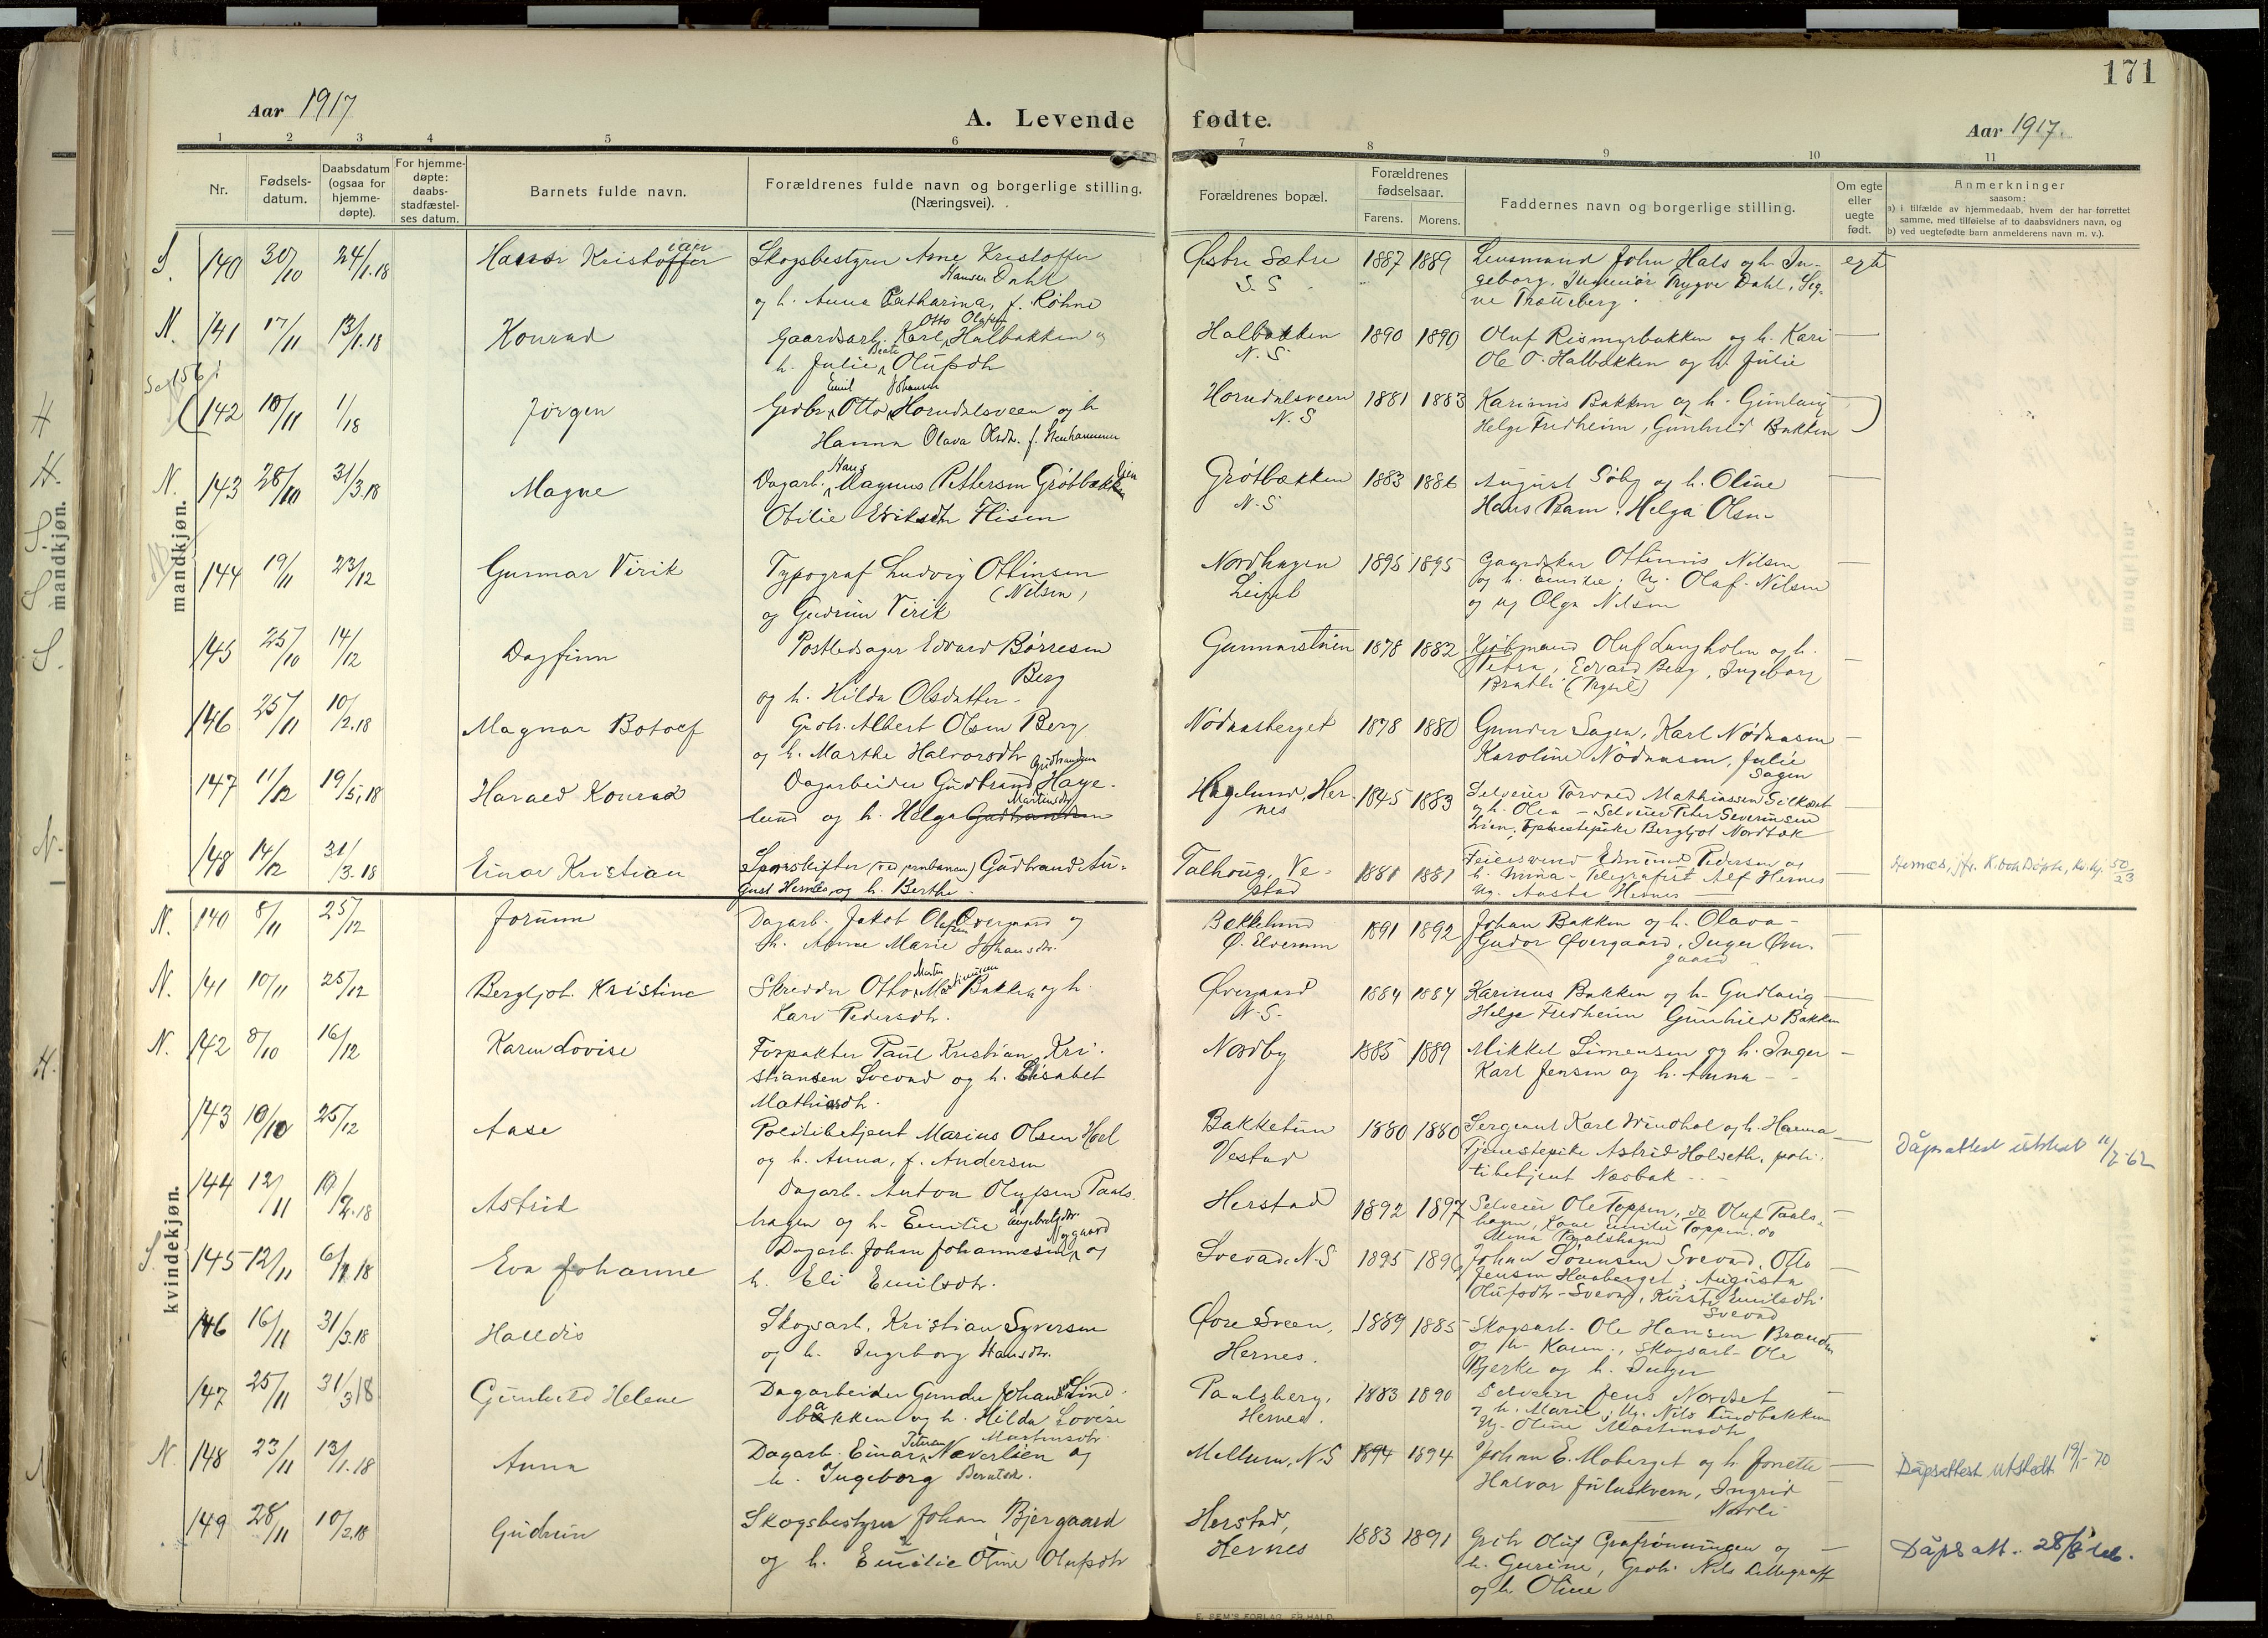 171
Aar 1917
A. Levende fødte.
Aar 1917.
1 2 3 4 5 6 7 8 9 10 11
Nr.
Fødsels-
datum.
Daabsdatum
(ogsaa for
hjemme-
døpte).
For hjemme-
døpte:
daabs-
stadfæstel-
ses datum.
Barnets fulde navn.
Forældrenes fulde navn og borgerlige stilling.
(Næringsvei).
Forældrenes bopæl.
Forældrenes
fødselsaar.
Farens. Morens.
Faddernes navn og borgerlige stilling.
Om egte
eller
uegte
født.
Anmerkninger
saasom:
a) i tilfælde av hjemmedaab, hvem der har forrettet
samme, med tilføielse af to daabsvidners navn, og
b) ved uegtefødte barn anmelderens navn m. v.).
mandkjøn.
S. 140 30/10 24/1.18 Kristoffer Skogsbestyrer Arne Kristoffer Østre Sætre 1887 1889 Lensmand John Hals og h. In- egte
ian Hansen Dahl S. S geborg, Ingeniør Trygve Dahl, Sig-
og h. Anna Catharina, f. Røhne ne Tratteberg.
N. 141 17/11 13/1.18 Konrad Gaardsarb. Karl Otto Olafsen Halbakken og Halbakken 1890 1890 Oluf Rismyrbakken og h. Kari
h. Julie Beate Olufsdtr N. S. Ole O. Halbakken og h. Julie
142 10/11 1/18 Jørgen Grdbr. Otto Emil Johansen Horndalsveen og h Horndalsveen 1881 1883 Karinus Bakken og h. Gunlaug
Hanna Olava Olsdtr. f. Stenhammer N. S Helge Fredheim, Gunhild Bakken
N. 143 28/10 31/3.18 Magne Dagarb. Hans Magnus Pettersen Grøtbækken Grøtbækken 1883 1886 August Søby og h. Oline
Otilie Eriksdtr Flisen N. S Hans Ram. Helga Olsen
144 19/11 23/12 Gunnar Virik Typograf Ludvig Ottinsen Nordhagen 1895 1895 Gaardskar Ottinius Nilsen
(Nilsen) Leiret og h. Emilie. Ug. Olaf Nilsen
og Gudrun Virik og ug Olga Nilsen
145 25/10 14/12 Dagfinn Postledsager Edvard Børresen Gunnarstuen 1878 1882 Kjøbmand Oluf Langholen og h.
Berg Petra, Edvard Berg, Ingeborg
og h. Hilda Olsdatter. Bratli (Trysil)
146 25/11 10/2.18 Magnar Botolf Grdbr. Albert Olsen Berg Nødaasberget 1878 1880 Gunder Sagen, Karl Nødaasen
og h. Marthe Halvorsdtr Karoline Nødaasen, Julie
Sagen
147 11/12 19/5.18 Harald Konrad Dagarbeider Gudbrand Gudbrandsen Hage- Hagelund, Her- 1845 1883 Selveier Torvald Mathiassen Silkæt
lund og h. Helga Martinsdtr nes og h. Olea - Selveier Peter Severinsen
Lien, tjenestepike Bergljot Nordbæk
148 14/12 31/3.18 Einar Kristian Sporskifter (ved jernbanen) Gudbrand Au- Talhoug, Ve- 1881 1881 Feiersvend Edmund Pedersen og
gust Hernæs og h. Berthe. stad h. Mina - Telegrafist Alf Hernes
Ug. Aasta Hernes
kvindekjøn.
N. 140 8/11 25/12 Jorunn Dagarb. Jakob Olafsen Øvergaard og Bakkelund 1891 1892 Johan Bakken og h. Olava -
h. Anne Marie Johansdtr. Ø. Elverum Gudor Øvergaard, Inger Øver-
gaard
N. 141 10/11 25/12 Bergljot Kristine Skredder Otto Bakken og h. Øvergaard 1884 1884 Karinus Bakken og h. Gudlaug
Kari Pedersdtr. N. S. Helge Fredheim Gunhild Bakken
N. 142 8/10 16/12 Karen Lovise Forpakter Paul Kristian Kri- Nordby 1885 1889 Mikkel Simensen og h. Inger
stiansen Svevad og h. Elisabet Karl Jensen og h. Anna
Mathiasdtr.
143 10/10 25/12 Aase Politibetjent Marius Olsen Hoel Bakketun 1880 1880 Sergeant Karl Windhol og h. Hanna
og h. Anna, f. Andersen Vestad Tjenestepike Astrid Holseth, poli-
tibetjent Næsbak Dåpsattest utstedt 11/7-62
144 12/11 Astrid Dagarb. Anton Olufsen Paals- Herstad 1892 1897 Selveier Ole Toppen, do Oluf Paals-
hagen og h. Emilie Engebretsdtr. hagen, Kone Emilie Toppen. do
Mina Paalshagen
S. 145 12/11 6/1 18 Eva Johanne Dagarb. Johan Johannessen Nygaard og Svevad, N. S 1895 1896 Johan Sørensen Svevad, Otto
h. Eli Emilsdtr. Jensen Haaberget, Augusta
Olufsdtr-Svevad, Kirsti Emilsdtr
Svevad
146 16/11 31/3.18 Halldis Skogsarb. Kristian Syversen Øvre Sveen, 1889 1885 Skogsarb. Ole Hansen Branden
og h. Ingeborg Hansdtr. Hernes. og h. Karen, Skogsarb. Ole
Bjerke og h. Inger
147 25/11 31/3 18 Gunhild Helene Dagarbeider Gunder Johansen Lind- Paalsberg, 1883 1890 Selveier Jens Nordset
bakken og h. Hilda Lovise Hernes. og h. Marie, Ug. Nils Lindbakken
Martinsdtr. Ug. Oline Martinsdtr
N. 148 23/11 13/1.18 Anna Dagarb. Einar Petersen Næverlien og Mellum, N. S 1894 1894 Johan E. Moberget og h. Jonette
h. Ingeborg Berntsdtr. Halvor Juluskvern, Ingrid
Norli Dåpsattest utstedt 19/1-70
149 28/11 10/2.18 Gudrun Skogsbestyrer Johan Bjørgaard Herstad, 1883 1891 Grdbr Oluf Grafrønningen og
og h. Emilie Otine Olufsdtr Hernes h. Gurine, Grdbr. Nils Lillegraff
og h. Oline Dåpsatt. 28/8
E. SEM'S FORLAG, FR.HALD.